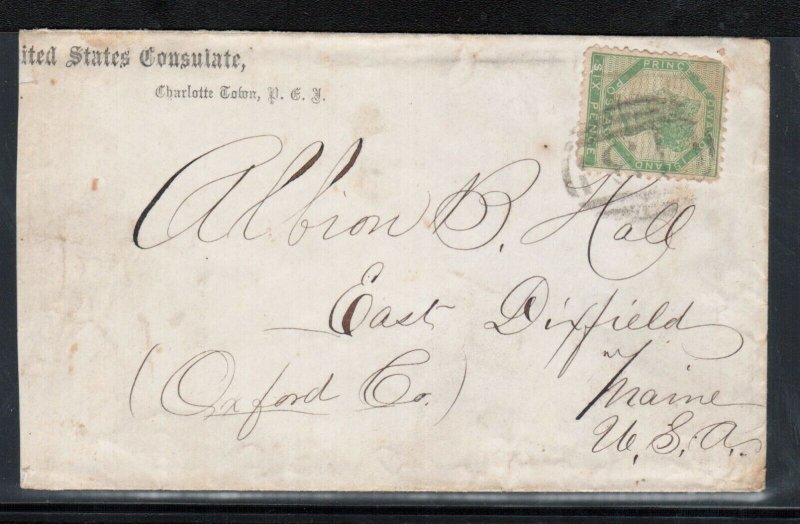 ited States Consulate,
Charlotte Town, P. E. I.
PRINC EDWARD ISLAND POSTAGE
SIX PENCE
Albion B. Hall
East Dixfield
Maine
(Oxford Co.)
U. S. A.